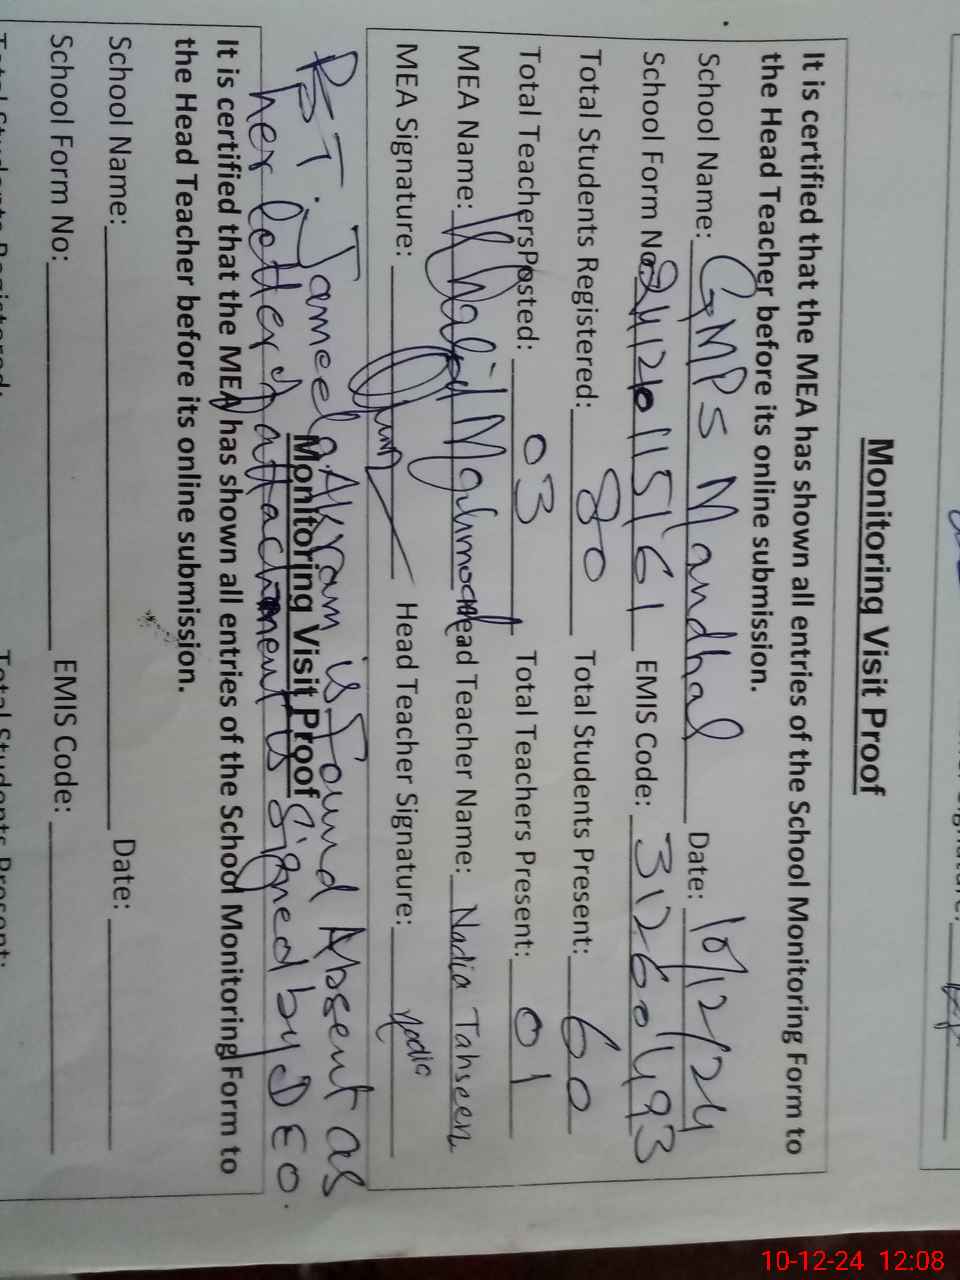 Monitoring Visit Proof
It is certified that the MEA has shown all entries of the School Monitoring Form to
the Head Teacher before its online submission.
School Name: GMPS Mandhal Date: 10/12/24
School Form No: 24120115161 EMIS Code: 31260493
Total Students Registered: 80 Total Students Present: 60
Total Teachers Posted: 03 Total Teachers Present: 01
MEA Name: Khalid Mahmood Head Teacher Name: Nadia Tahseen
MEA Signature: Head Teacher Signature: Nadia
PST. Jameela Akram is Found Absent as
her letter of attachment is Signed by DEO.
Monitoring Visit Proof
It is certified that the MEA has shown all entries of the School Monitoring Form to
the Head Teacher before its online submission.
School Name: Date:
School Form No: EMIS Code:
Total Students Registered: Total Students Present:
10-12-24 12:08